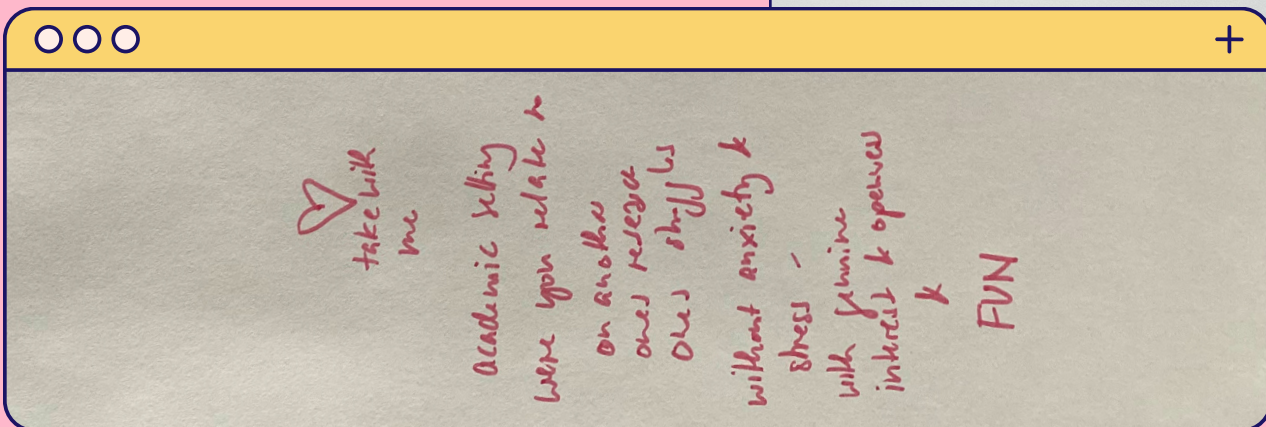 take with
me
academic setting
were you relate to
on anothe
ones reserach
ones struggles
without anxiety &
stress -
with genuine
interest & openness
&
FUN